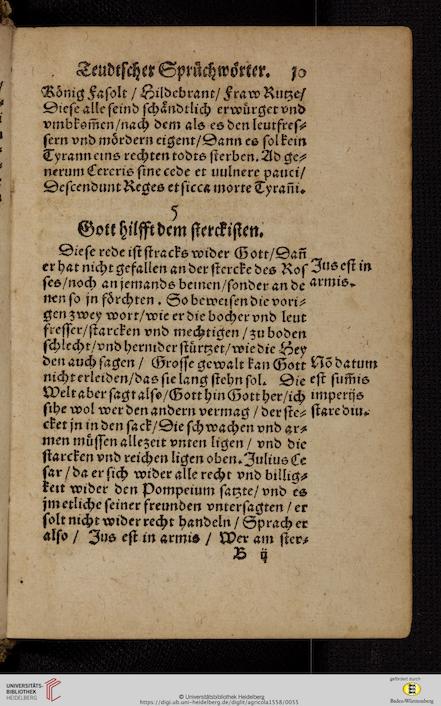 Teudtscher Sprüchwörter. 10
König Fasolt / Hildebrant / Fraw Rutze /
Diese alle seind schändtlich erwürget vnd
vmbkom̃en / nach dem als es den leutfres-
sern vnd mördern eigent / Dann es sol kein
Tyrann eins rechten todts sterben. Ad ge-
nerum Cereris sine cede et vulnere pauci /
Descendunt Reges et sicca morte Tyrañi.
5
Gott hilfft dem sterckisten.
Diese rede ist stracks wider Gott / Dañ
er hat nicht gefallen an der stercke des Ros
ses / noch an jemands beinen / sonder an de
nen so jn förchten . So beweisen die vori-
gen zwey wort / wie er die bocher vnd leut
fresser / starcken vnd mechtigen / zu boden
schlecht / vnd hernider stürtzet / wie die Hey
den auch sagen / Grosse gewalt kan Gott
nicht erleiden / das sie lang stehn sol. Die
Welt aber sagt also / Gott hin Gott her / ich
sihe wol wer den andern vermag / der ste-
cket jn in den sack / Die schwachen vnd ar-
men müssen allezeit vnten ligen / vnd die
starcken vnd reichen ligen oben. Julius Ce
sar / da er sich wider alle recht vnd billig-
keit wider den Pompeium satzte / vnd es
jm etliche seiner freunden vntersagten / er
solt nicht wider recht handeln / Sprach er
also / Jus est in armis / Wer am ster-
B ij
Jus est in
armis.
Nõ datum
est sum̃is
imperijs
stare diu.
UNIVERSITÄTS-
BIBLIOTHEK
HEIDELBERG
© Universitätsbibliothek Heidelberg
https://digi.ub.uni-heidelberg.de/diglit/agricola1558/0035
gefördert durch
Baden-Württemberg